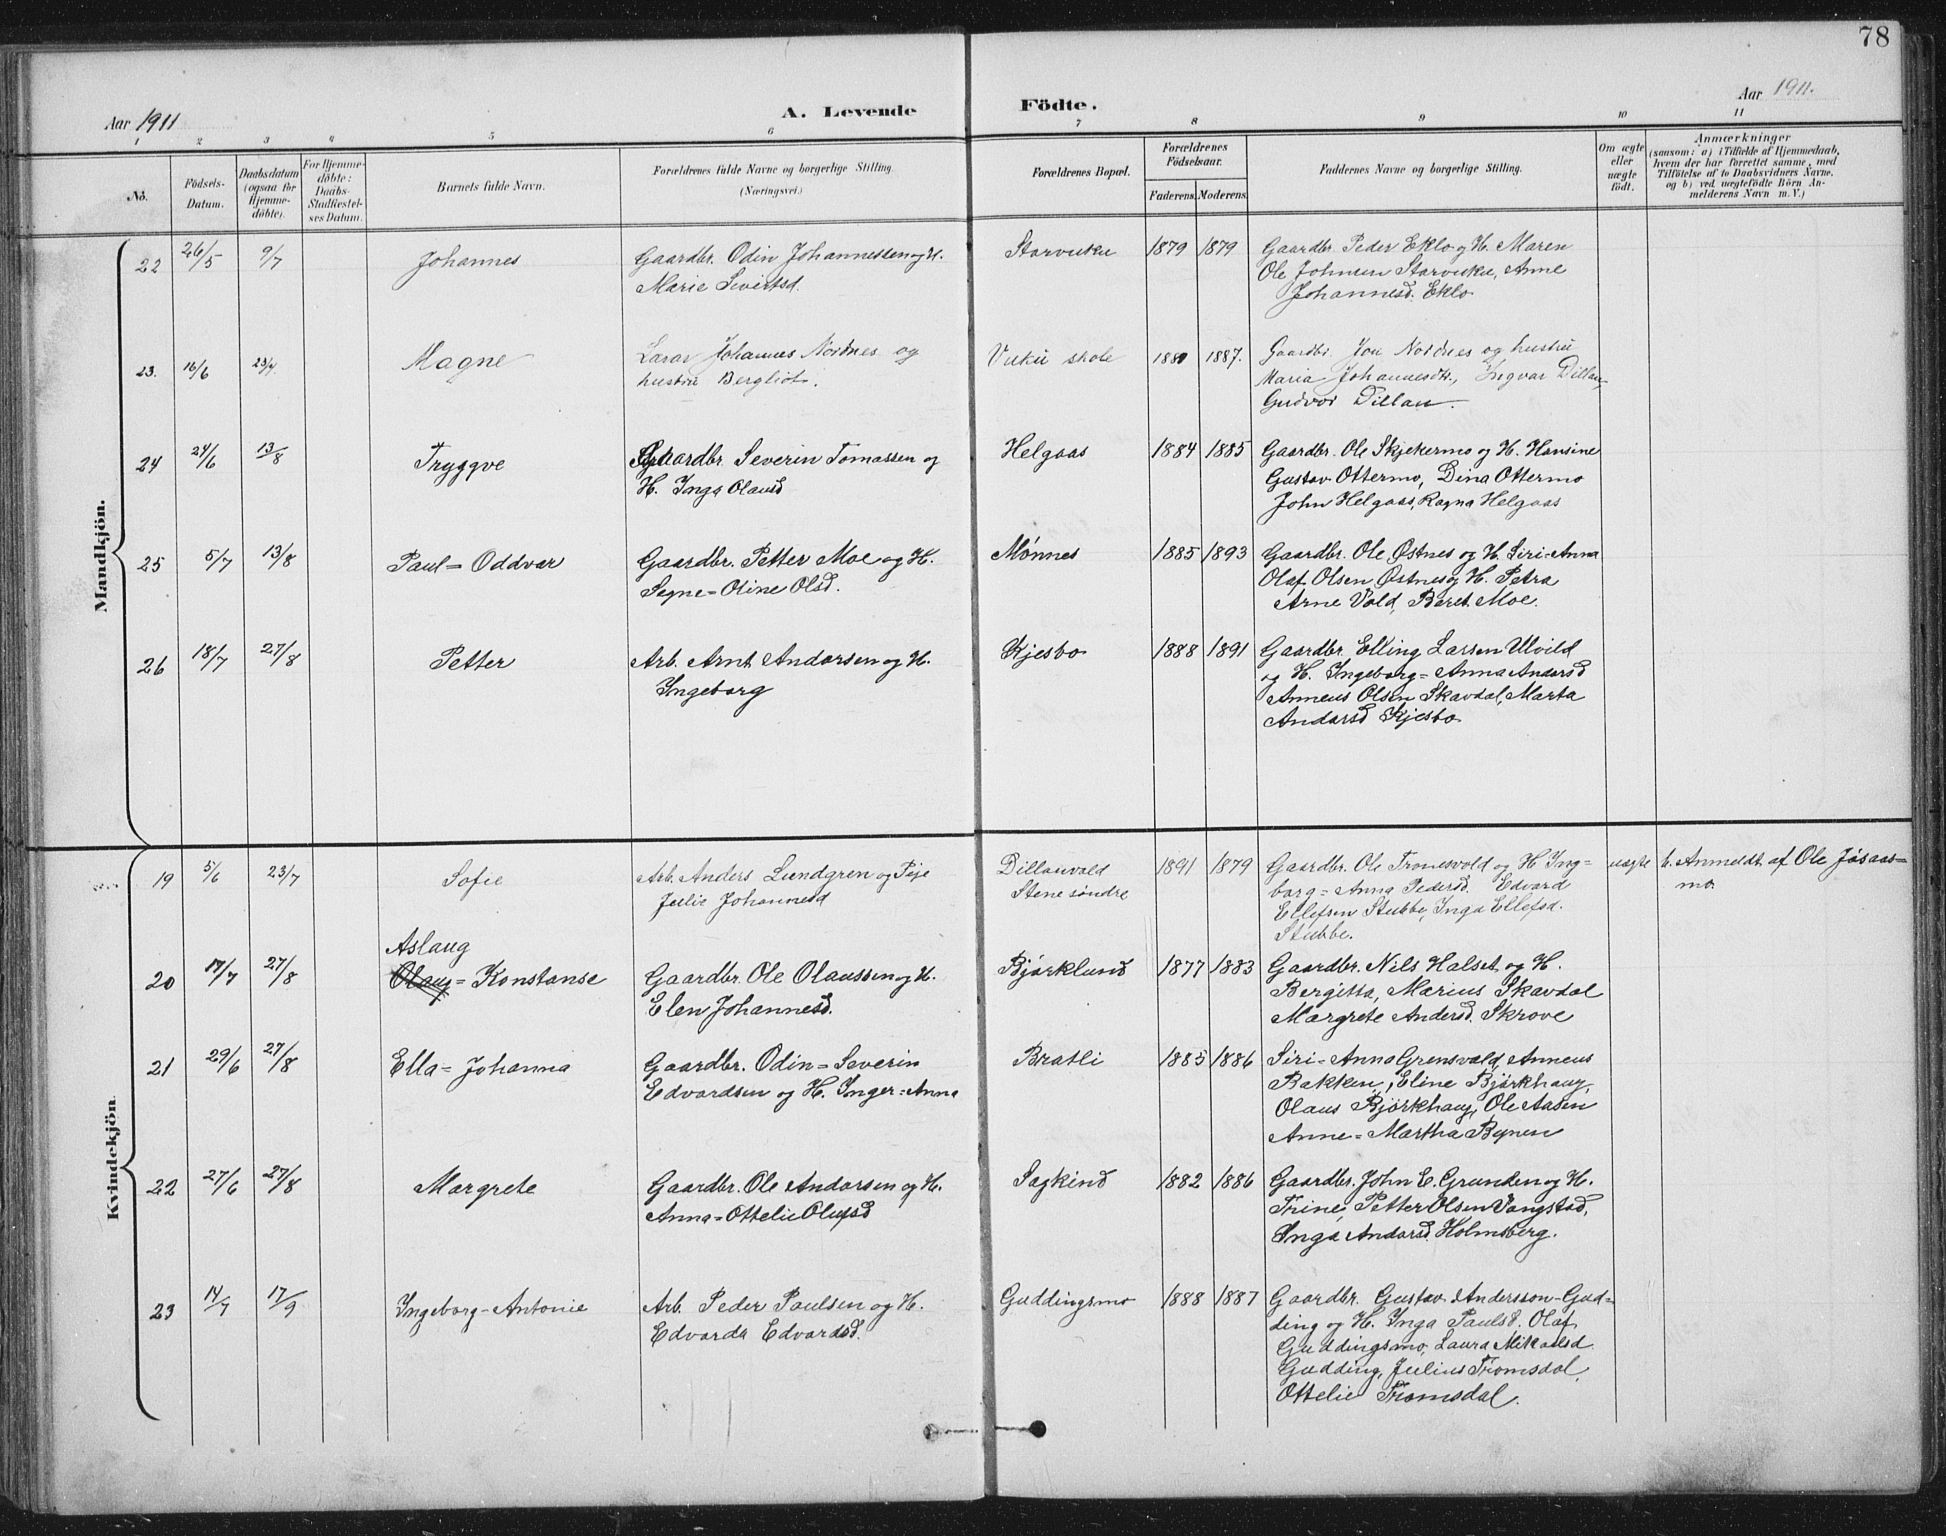 78
Aar 1911
A. Levende Födte.
Aar 1911.
1 2 3 4 5 6 7 8 9 10 11
No.
Födsels-
Datum.
Daabsdatum
(ogsaa for
Hjemme-
döbte).
For Hjemme-
döbte:
Daabs-
Stadfæstel-
ses Datum.
Barnets fulde Navn.
Forældrenes fulde Navne og borgerlige Stilling.
(Næringsvei.)
Forældrenes Bopæl.
Forældrenes
Födselsaar.
Faderens. Moderens.
Faddernes Navne og borgerlige Stilling.
Om ægte
eller
uægte
födt.
Anmærkninger
(saasom: a) i Tilfælde af Hjemmedaab,
hvem der har forrettet samme, med
Tilföielse af to Daabsvidners Navne,
og b) ved uægtefödte Börn An-
melderens Navn m. V.)
Mandkjön.
22 26/5 9/7 Johannes Gaardbr. Odin Johannessen og H. Starvuku 1879 1879 Gaardbr. Peder Eklo og H. Maren
Marie Sivertsd. Ole Johnsen Starvuku, Anne
Johannesd. Eklo
23. 16/6 23/7 Magne Lærar Johannes Nordnes og Vuku skole 1880 1887. Gaardbr. Jon Nordnes og hustru
hustru Bergliot. Maria Johannesdtr., Ingvar Dillan,
Gudvor Dillan.
24 24/6 13/8 Tryggve Gaardbr. Severin Tomassen og Helgaas 1884 1885 Gaardbr. Ole Skjekermo og H. Hansine
H. Inga Olausd Gustav Ottermo, Dina Ottermo
John Helgaas, Ragna Helgaas
25 5/7 13/8 Paul=Oddvar Gaardbr. Petter Moe og H. Mønnes 1885 1893 Gaardbr. Ole Østnes og H. Siri=Anna
=Oline Olsd. Olaf Olsen Østnes og H. Petra
Arne Vold, Beret Moe.
26 18/7 27/8 Petter Arb. Arnt Andersen og H. Kjesbo 1888 1891 Gaardbr. Elling Larsen Ulvild
Ingeborg og H. Ingeborg=Anna Andersd
Anneus Olsen Skavdal, Marta
Andersd Kjesbo
Kvindekjön.
19 5/6 23/7 Sofie Arb. Anders Lundgren og Pige Dillanvald 1891 1879 Gaardbr. Ole Tronesvold og H Ing- uægte b. Anmeldt af Ole Jøsaas=
Julie Johannesd Stene søndre borg=Anna Pedersd. Edvard mo.
Ellefsen Stubbe, Inga Ellefsd.
Stubbe.
Aslaug
20 17/7 27/8 Olaug=Konstanse Gaardbr. Ole Olaussen og H. Bjørklund 1877 1883 Gaardbr. Nils Halset og H.
Elen Johannesd. Bergitta, Marius Skavdal
Margrete Andersd. Skrove
21 29/6 27/8 Ella=Johanna Gaardbr. Odin=Severin Bratli 1885 1886 Siri=Anna Grensvald, Anneus
Edvardsen og H. Inger=Anna Bakken, Eline Bjørkhaug,
Olaus Bjørkhaug, Ole Aasen
Anne=Martha Bynen
22 27/6 27/8 Margrete Gaardbr. Ole Andersen og H. Sagkind 1882 1886 Gaardbr. John E. Grunden og H.
Anna=Ottelie Olufsd Trine, Petter Olsen Vangstad,
Inga Andersd. Holmsberg.
23 14/7 17/9 Ingeborg=Antonie Arb. Peder Paulsen og H. Guddingsmo 1888 1887 Gaardbr. Gustav Andersson Gud=
Edvarda Edvardsd. ding og H. Inga Paulsd. Olaf
Guddingsmo, Laura Mikalsd
Gudding, Julius Tromsdal,
Ottelie Tromsdal.